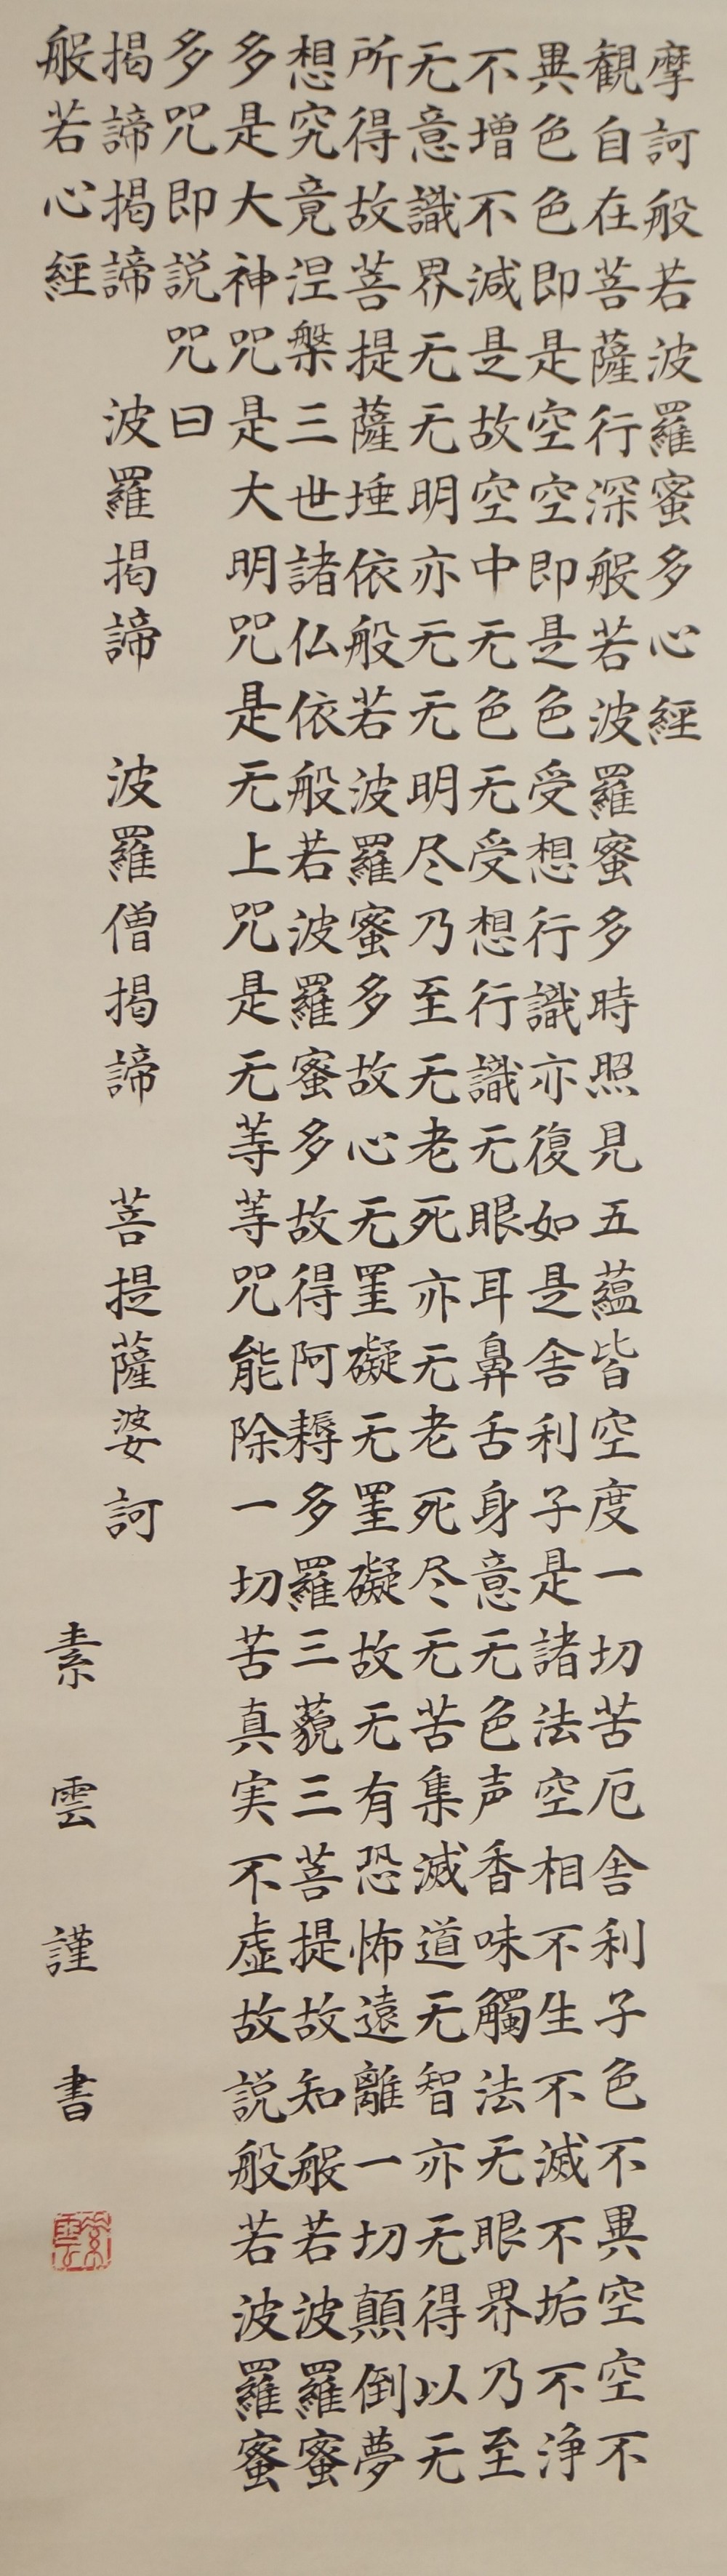 摩訶般若波羅蜜多心經
観自在菩薩行深般若波羅蜜多時照見五蘊皆空度一切苦厄舎利子色不異空空不
異色色即是空空即是色受想行識亦復如是舎利子是諸法空相不生不滅不垢不浄
不増不減是故空中无色无受想行識无眼耳鼻舌身意无色声香味觸法无眼界乃至
无意識界无无明亦无无明尽乃至无老死亦无老死尽无苦集滅道无智亦无得以无
所得故菩提薩埵依般若波羅蜜多故心无罣礙无罣礙故无有恐怖遠離一切顛倒夢
想究竟涅槃三世諸仏依般若波羅蜜多故得阿耨多羅三藐三菩提故知般若波羅蜜
多是大神咒是大明咒是无上咒是无等等咒能除一切苦真実不虚故説般若波羅蜜
多咒即説咒曰
揭諦揭諦 波羅揭諦 波羅僧揭諦 菩提薩婆訶
般若心經 素雲謹書
素雲